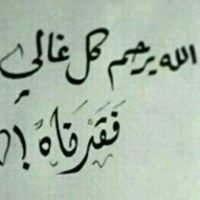 الله يرحم كل غالي
فَقَدْنَاهُ !!